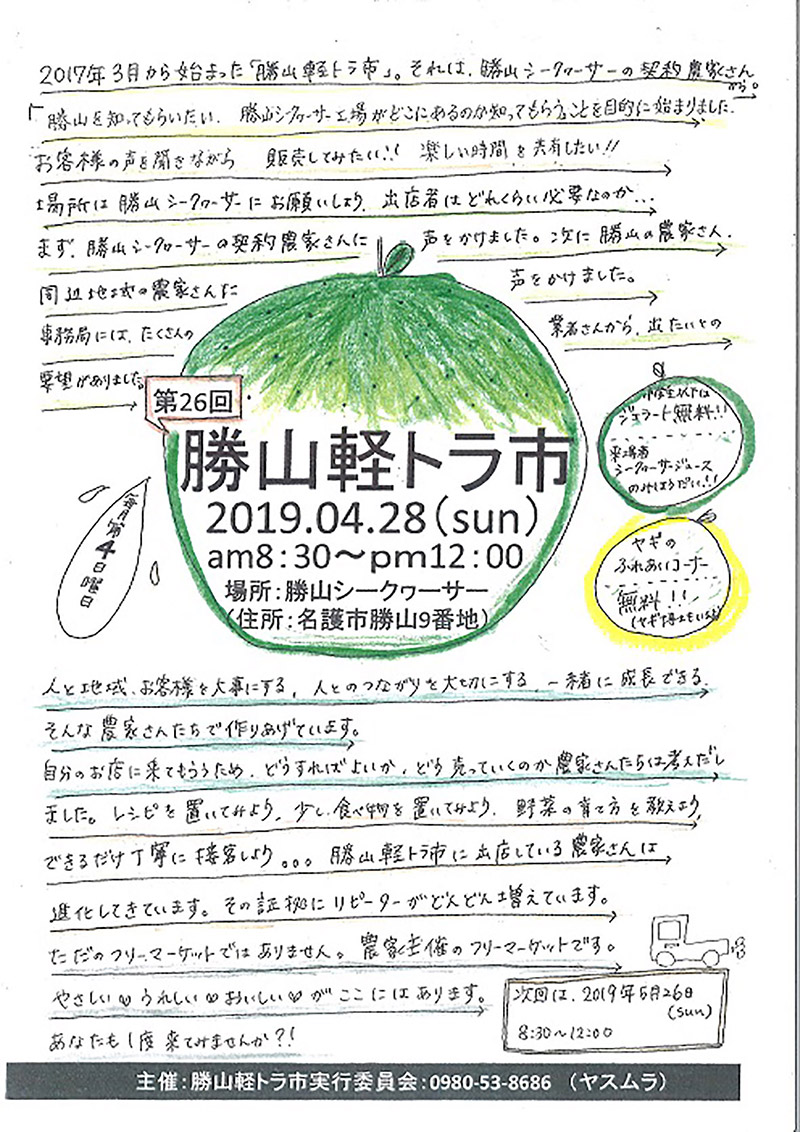 2017年3月から始まった「勝山軽トラ市」。それは、勝山シークヮーサーの契約農家さんから。
「勝山を知ってもらいたい、勝山シークヮーサー工場がどこにあるのか知ってもらうことを目的に始まりました。
お客様の声を聞きながら 販売してみたい!! 楽しい時間を共有したい!!
場所は勝山シークヮーサーにお願いしよう、出店者はどれくらい必要なのか...
まず、勝山シークヮーサーの契約農家さんに 声をかけました。次に勝山の農家さん、
周辺地域の農家さんに 声をかけました。
事務局には、たくさんの 業者さんから、出たいとの
要望がありました
第26回
勝山軽トラ市
2019.04.28(sun)
am8:30～pm12:00
場所:勝山シークヮーサー
(住所:名護市勝山9番地)
毎月第4日曜日
ジェラート無料!!
来場者
シークヮーサージュース
のみほうだい!!
ヤギの
ふれあいコーナー
無料!!
(ヤギ博士もいるよ)
人と地域、お客様を大事にする、人とのつながりを大切にする 一緒に成長できる。
そんな農家さんたちで作りあげています。
自分のお店に来てもらうため、どうすればよいか、どう売っていくのか農家さんたちは考えだし
ました。レシピを置いてみよう、少し食べ物を置いてみよう、野菜の育て方を教えよう、
できるだけ丁寧に接客しよう。。。勝山軽トラ市に出店している農家さんは
進化してきています。その証拠にリピーターがどんどん増えています。
ただのフリーマーケットではありません。農家主催のフリーマーケットです。
やさしい♡うれしい♡おいしい♡がここにはあります。
あなたも1度来てみませんか?!
次回は、2019年5月26日
(sun)
8:30～12:00
主催:勝山軽トラ市実行委員会:0980-53-8686 (ヤスムラ)